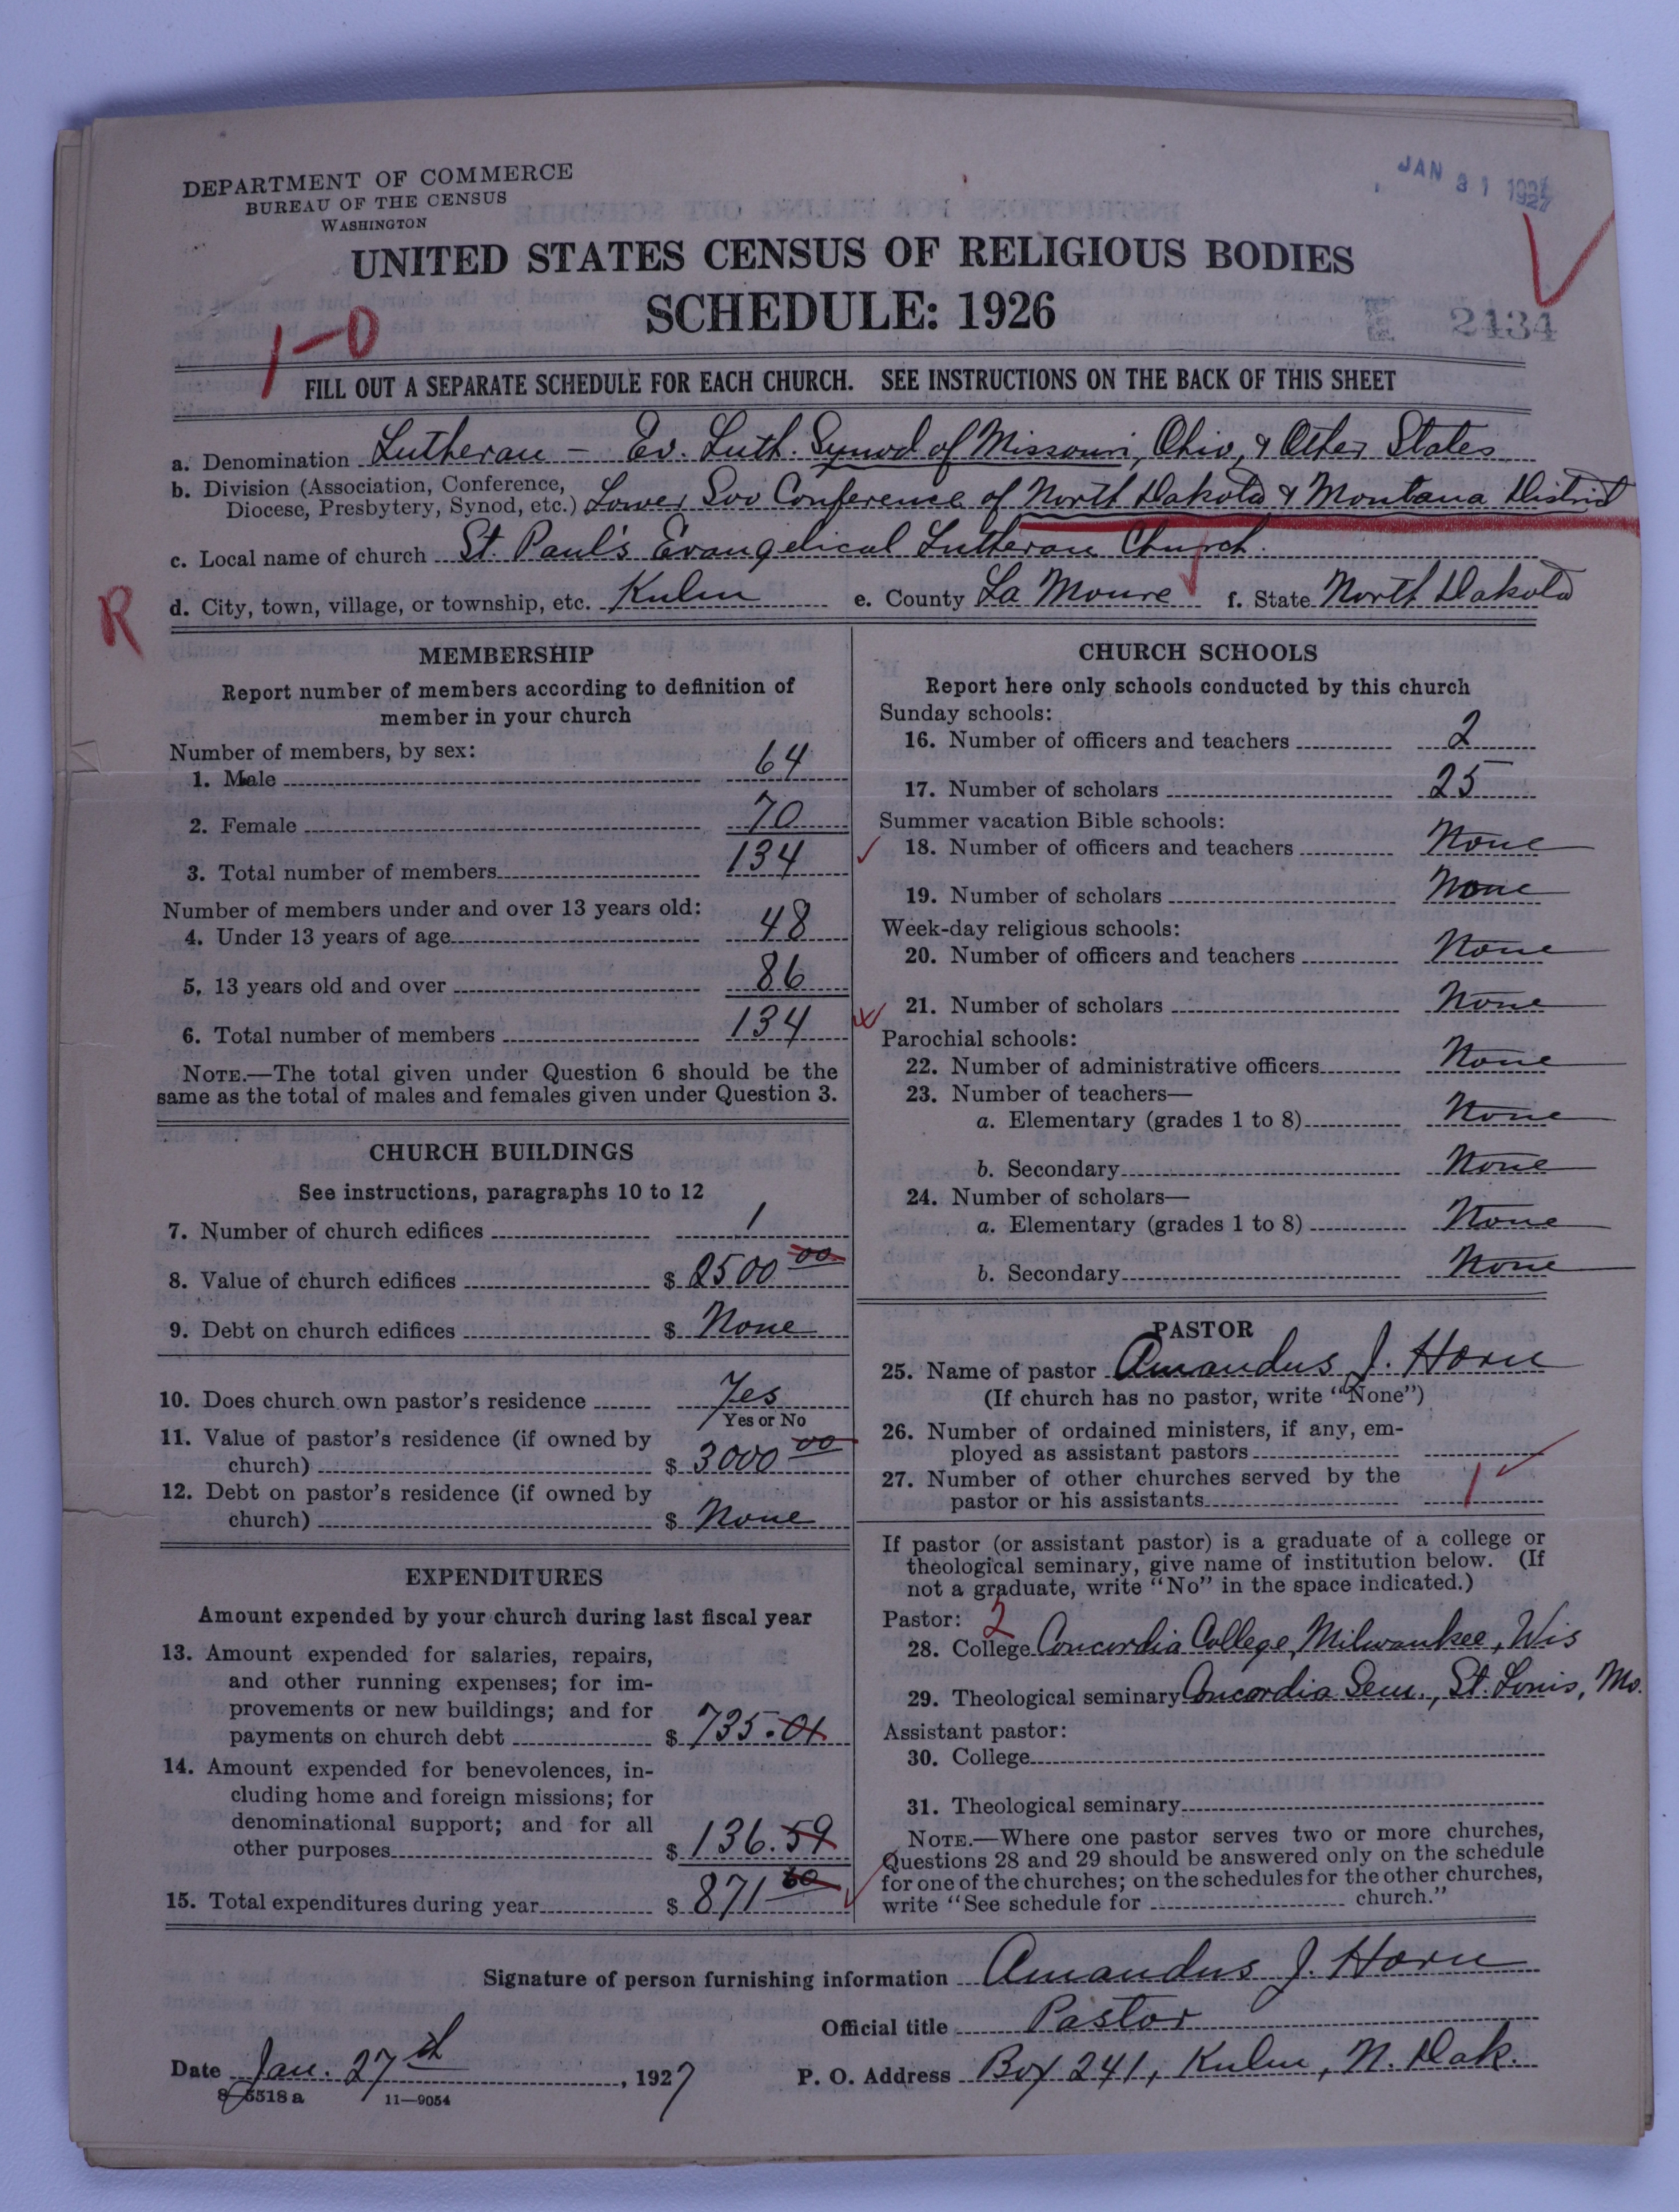 JAN 31 1927
DEPARTMENT OF COMMERCE
BUREAU OF THE CENSUS
WASHINGTON
UNITED STATES CENSUS OF RELIGIOUS BODIES
SCHEDULE: 1926
1-0
E 2434
FILL OUT A SEPARATE SCHEDULE FOR EACH CHURCH. SEE INSTRUCTIONS ON THE BACK OF THIS SHEET
a. Denomination Lutheran - Ev. Luth. Synod of Missouri, Ohio, & Other States
b. Division (Association, Conference,
Diocese, Presbytery, Synod, etc.) Lower Soo Conference of North Dakota & Montana District
c. Local name of church St. Paul's Evangelical Lutheran Church.
R
d. City, town, village, or township, etc. Kulm e. County La Moure f. State North Dakota
MEMBERSHIP
Report number of members according to definition of
member in your church
Number of members, by sex:
1. Male 64
2. Female 70
3. Total number of members 134
Number of members under and over 13 years old:
4. Under 13 years of age 48
5. 13 years old and over 86
6. Total number of members 134
NOTE.—The total given under Question 6 should be the
same as the total of males and females given under Question 3.
CHURCH BUILDINGS
See instructions, paragraphs 10 to 12
7. Number of church edifices 1
8. Value of church edifices $ 2500 00
9. Debt on church edifices $ None
10. Does church own pastor's residence Yes
Yes or No
11. Value of pastor's residence (if owned by
church) $ 3000 00
12. Debt on pastor's residence (if owned by
church) $ None
EXPENDITURES
Amount expended by your church during last fiscal year
13. Amount expended for salaries, repairs,
and other running expenses; for im-
provements or new buildings; and for
payments on church debt $ 735.01
14. Amount expended for benevolences, in-
cluding home and foreign missions; for
denominational support; and for all
other purposes $ 136.59
15. Total expenditures during year $ 871 60
CHURCH SCHOOLS
Report here only schools conducted by this church
Sunday schools:
16. Number of officers and teachers 2
17. Number of scholars 25
Summer vacation Bible schools:
18. Number of officers and teachers None
19. Number of scholars None
Week-day religious schools:
20. Number of officers and teachers None
21. Number of scholars None
Parochial schools:
22. Number of administrative officers None
23. Number of teachers—
a. Elementary (grades 1 to 8) None
b. Secondary None
24. Number of scholars—
a. Elementary (grades 1 to 8) None
b. Secondary None
PASTOR
25. Name of pastor Amandus J. Horn
(If church has no pastor, write "None")
26. Number of ordained ministers, if any, em-
ployed as assistant pastors
27. Number of other churches served by the
pastor or his assistants 1
If pastor (or assistant pastor) is a graduate of a college or
theological seminary, give name of institution below. (If
not a graduate, write "No" in the space indicated.)
Pastor: 2
28. College Concordia College, Milwaukee, Wis
29. Theological seminary Concordia Sem., St. Louis, Mo.
Assistant pastor:
30. College
31. Theological seminary
NOTE.—Where one pastor serves two or more churches,
Questions 28 and 29 should be answered only on the schedule
for one of the churches; on the schedules for the other churches,
write "See schedule for church."
Signature of person furnishing information Amandus J. Horn
Official title Pastor
Date Jan. 27th, 1927 P. O. Address Box 241, Kulm, N. Dak.
8-5518 a 11—9054